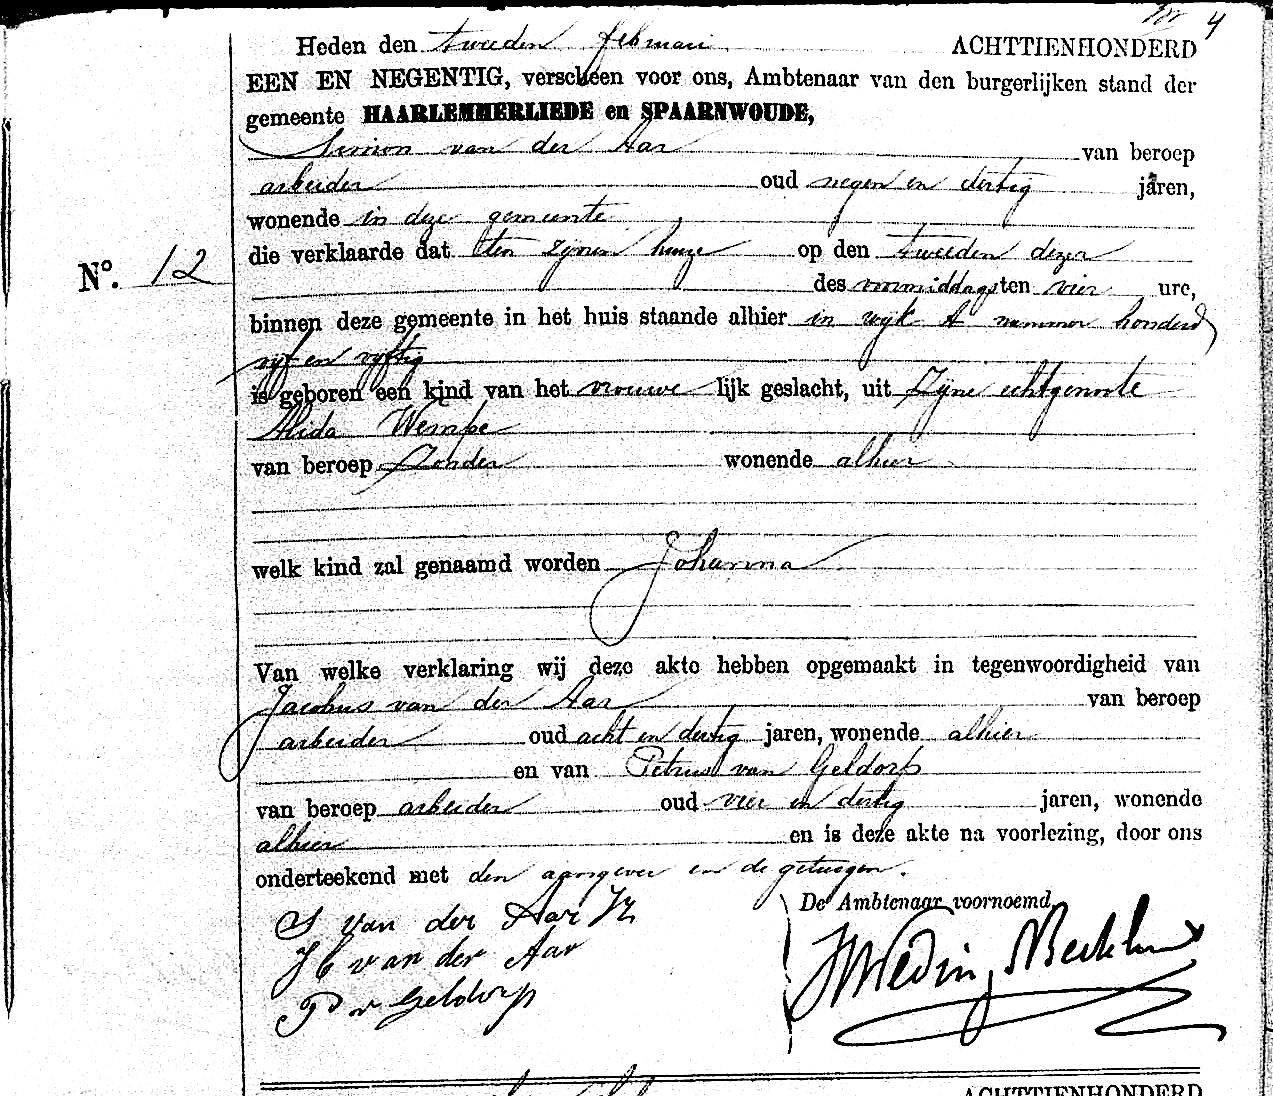 4
Heden den tweeden februari ACHTTIENHONDERD
EEN EN NEGENTIG, verscheen voor ons, Ambtenaar van den burgerlijken stand der
gemeente HAARLEMMERLIEDE en SPAARNWOUDE,
Simon van der Aar van beroep
arbeider oud negen en dertig jaren,
wonende in deze gemeente
die verklaarde dat ten zijnen huize op den tweeden dezer
No. 12
des voormiddags ten vier ure,
binnen deze gemeente in het huis staande alhier in wijk A nummer honderd
vijf en vijftig
is geboren een kind van het vrouwelijk geslacht, uit Zijne echtgenoote
Alida Wempe
van beroep Zonder wonende alhier
welk kind zal genaamd worden Johanna
Van welke verklaring wij deze akte hebben opgemaakt in tegenwoordigheid van
Jacobus van der Aar van beroep
arbeider oud acht en dertig jaren, wonende alhier
en van Petrus van Geldorp
van beroep arbeider oud vier en dertig jaren, wonende
alhier en is deze akte na voorlezing, door ons
onderteekend met den aangever en de getuigen.
De Ambtenaar voornoemd,
S van der Aar Jz
J C van der Aar
P v Geldorp
ACHTTIENHONDERD